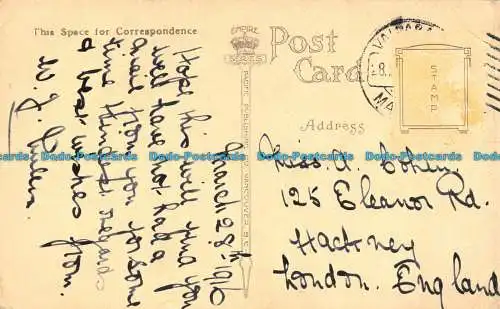 This Space for Correspondence
EMPIRE
SERIES
Post
Card
Address
PACIFIC PUBLISHING VANCOUVER B.C.
STAMP
March 28th 1910
Hope this will find you
well have not had a
card from you for some
time Kindest regards
& best wishes from
W. J.
Miss. A. Cohen,
125 Eleanor Rd.
Hackney
London. England
Dodo-Postcards Dodo-Postcards Dodo-Postcards Dodo-Postcards
Dodo-Postcards Dodo-Postcards Dodo-Postcards Dodo-Postcards